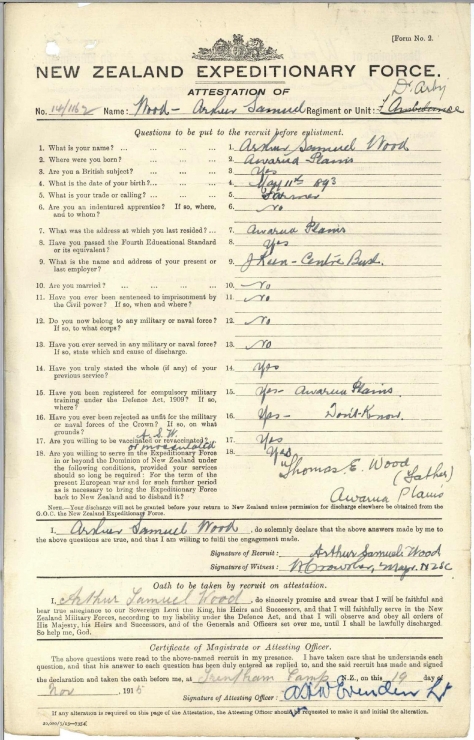 [Form No. 2.
NEW ZEALAND EXPEDITIONARY FORCE.
ATTESTATION OF
No. 14/1162 Name: Wood - Arthur Samuel Regiment or Unit: Ambulance
Questions to be put to the recruit before enlistment.
1. What is your name? ... 1. Arthur Samuel Wood
2. Where were you born? 2. Awarua Plains
3. Are you a British subject? 3. Yes
4. What is the date of your birth? 4. May 11th 1893
5. What is your trade or calling? 5. Farmer
6. Are you an indentured apprentice? If so, where, 6. No
and to whom?
7. What was the address at which you last resided? 7. Awarua Plains
8. Have you passed the Fourth Educational Standard 8. Yes
or its equivalent?
9. What is the name and address of your present or 9. J Keen - Centre Bush
last employer?
10. Are you married? 10. No
11. Have you ever been sentenced to imprisonment by 11. No
the Civil power? If so, when and where?
12. Do you now belong to any military or naval force? 12. No
If so, to what corps?
13. Have you ever served in any military or naval force? 13. No
If so, state which and cause of discharge.
14. Have you truly stated the whole (if any) of your 14. Yes
previous service?
15. Have you been registered for compulsory military 15. Yes - Awarua Plains.
training under the Defence Act, 1909? If so,
where?
16. Have you ever been rejected as unfit for the military 16. Yes - Don't Know.
or naval forces of the Crown? If so, on what
grounds?
17. Are you willing to be vaccinated or revaccinated? 17. Yes
or inoculated
18. Are you willing to serve in the Expeditionary Force 18. Yes.
in or beyond the Dominion of New Zealand under Thomas E. Wood
the following conditions, provided your services (Father)
should so long be required: For the term of the Awarua Plains
present European war and for such further period
as is necessary to bring the Expeditionary Force
back to New Zealand and to disband it?
NOTE.—Your discharge will not be granted before your return to New Zealand unless permission for discharge elsewhere be obtained from the
G.O.C. the New Zealand Expeditionary Force.
I, Arthur Samuel Wood, do solemnly declare that the above answers made by me to
the above questions are true, and that I am willing to fulfil the engagement made.
Signature of Recruit: Arthur Samuel Wood
Signature of Witness: Major. NZSC
Oath to be taken by recruit on attestation.
I, Arthur Samuel Wood, do sincerely promise and swear that I will be faithful and
bear true allegiance to our Sovereign Lord the King, his Heirs and Successors, and that I will faithfully serve in the New
Zealand Military Forces, according to my liability under the Defence Act, and that I will observe and obey all orders of
His Majesty, his Heirs and Successors, and of the Generals and Officers set over me, until I shall be lawfully discharged.
So help me, God.
Certificate of Magistrate or Attesting Officer.
The above questions were read to the above-named recruit in my presence. I have taken care that he understands each
question, and that his answer to each question has been duly entered as replied to, and the said recruit has made and signed
the declaration and taken the oath before me, at Trentham Camp, N.Z., on this 19 day of
Nov , 1915
Signature of Attesting Officer: Evenden Lt
If any alteration is required on this page of the Attestation, the Attesting Officer should be requested to make it and initial the alteration.